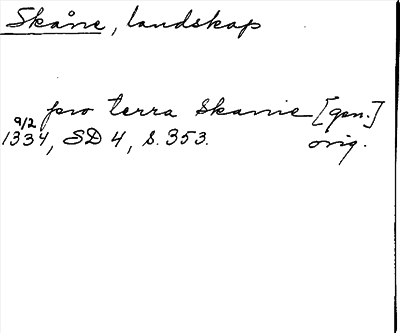 Skåne, landskap
pro terra Skanie [gen.]
9/2 1334, SD 4, s. 353. orig.